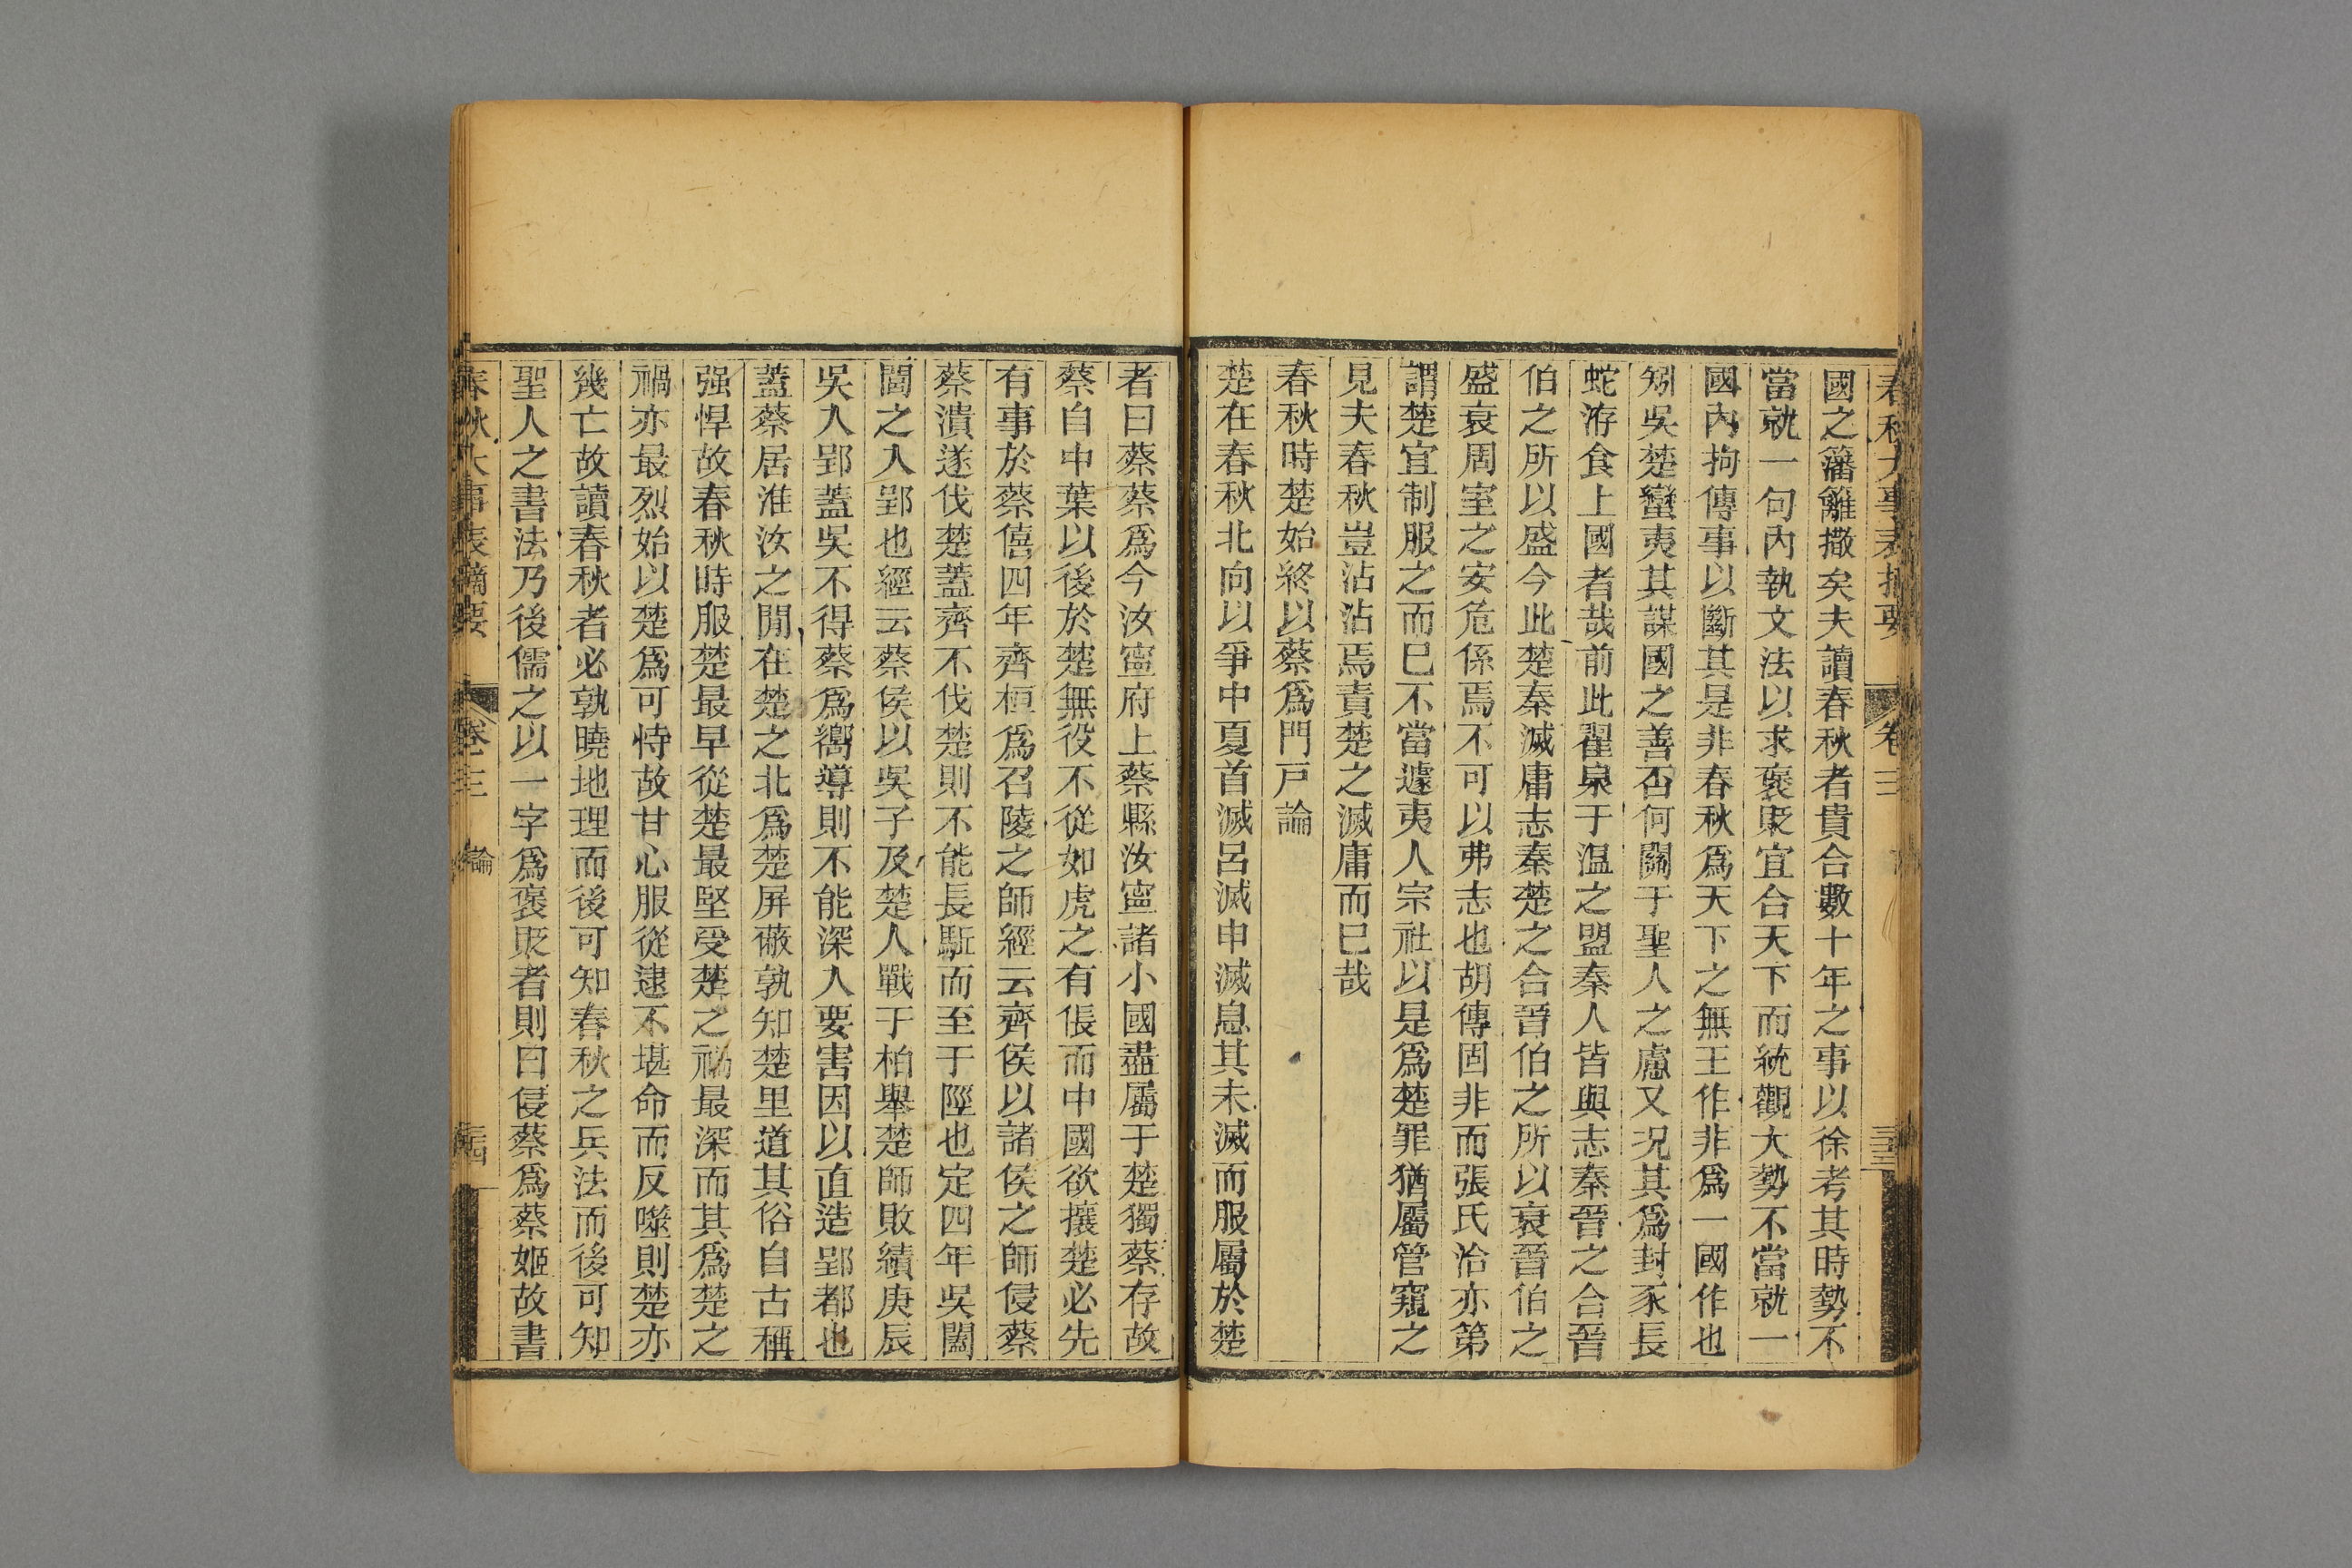 春秋大事表摘要 卷三 三三
國之籓籬撒矣夫讀春秋者貴合數十年之事以徐考其時勢不
當就一句內執文法以求褒貶宜合天下而統觀大勢不當就一
國內拘傳事以斷其是非春秋爲天下之無王作非爲一國作也
矧吳楚蠻夷其謀國之善否何關于聖人之慮又況其爲封豕長
蛇洊食上國者哉前此翟泉于温之盟秦人皆與志秦晉之合晉
伯之所以盛今此楚秦滅庸志秦楚之合晉伯之所以衰晉伯之
盛衰周室之安危係焉不可以弗志也胡傳固非而張氏洽亦第
謂楚宜制服之而已不當遽夷人宗社以是爲楚罪猶屬管窺之
見夫春秋豈沾沾焉責楚之滅庸而已哉
春秋時楚始終以蔡爲門戸論
楚在春秋北向以爭中夏首滅呂滅申滅息其未滅而服屬於楚
者曰蔡蔡爲今汝寧府上蔡縣汝寧諸小國盡屬于楚獨蔡存故
蔡自中葉以後於楚無役不從如虎之有倀而中國欲攘楚必先
有事於蔡僖四年齊桓爲召陵之師經云齊侯以諸侯之師侵蔡
蔡潰遂伐楚蓋齊不伐楚則不能長駈而至于陘也定四年吳闔
閭之入郢也經云蔡侯以吳子及楚人戰于柏舉楚師敗績庚辰
吳入郢蓋吳不得蔡爲嚮導則不能深入要害因以直造郢都也
蓋蔡居淮汝之閒在楚之北爲楚屏蔽孰知楚里道其俗自古稱
强悍故春秋時服楚最早從楚最堅受楚之禍最深而其爲楚之
禍亦最烈始以楚爲可恃故甘心服從逮不堪命而反噬則楚亦
幾亡故讀春秋者必孰曉地理而後可知春秋之兵法而後可知
聖人之書法乃後儒之以一字爲褒貶者則曰侵蔡爲蔡姬故書
春秋大事表摘要 卷三 論 三四